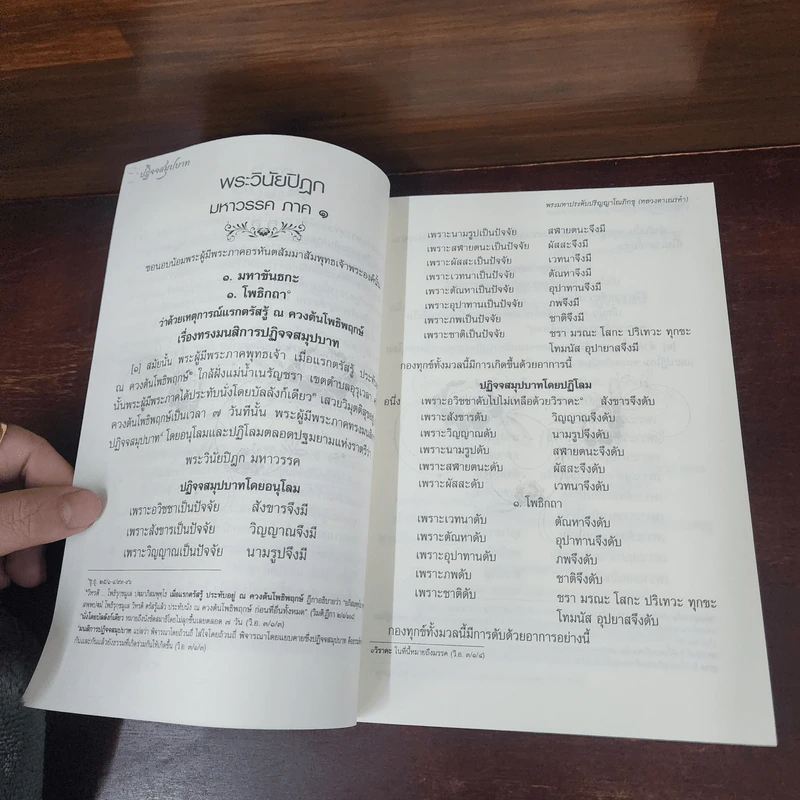 ปฏิจจสมุปบาท
พระวินัยปิฎก
มหาวรรค ภาค ๑
ขอนอบน้อมพระผู้มีพระภาคอรหันตสัมมาสัมพุทธเจ้าพระองค์นั้น
๑. มหาขันธกะ
๑. โพธิกถา
ว่าด้วยเหตุการณ์แรกตรัสรู้ ณ ควงต้นโพธิพฤกษ์
เรื่องทรงมนสิการปฏิจจสมุปบาท
[๑] สมัยนั้น พระผู้มีพระภาคพุทธเจ้า เมื่อแรกตรัสรู้ ประทับ
ณ ควงต้นโพธิพฤกษ์ ใกล้ฝั่งแม่น้ำเนรัญชรา เขตตำบลอุรุเวลา
นั้นพระผู้มีพระภาคได้ประทับนั่งโดยบัลลังก์เดียว เสวยวิมุตติสุข
ควงต้นโพธิพฤกษ์เป็นเวลา ๗ วันที่นั้น พระผู้มีพระภาคทรงมนสิการ
ปฏิจจสมุปบาท โดยอนุโลมและปฏิโลมตลอดปฐมยามแห่งราตรีว่า
พระวินัยปิฎก มหาวรรค
ปฏิจจสมุปบาทโดยอนุโลม
เพราะอวิชชาเป็นปัจจัย สังขารจึงมี
เพราะสังขารเป็นปัจจัย วิญญาณจึงมี
เพราะวิญญาณเป็นปัจจัย นามรูปจึงมี
เมื่อแรกตรัสรู้ ประทับอยู่ ณ ควงต้นโพธิพฤกษ์
นั่งโดยบัลลังก์เดียว หมายถึงนั่งขัดสมาธิโดยไม่ลุกขึ้นเลยตลอด ๗ วัน (วิ.อ. ๓/๑/๓)
มนสิการปฏิจจสมุปบาท แปลว่า พิจารณาโดยถ้วนถี่ ใส่ใจโดยถ้วนถี่ พิจารณาโดยแยบคายซึ่งปฏิจจสมุปบาท
กันและกันแล้วยังธรรมที่เกิดร่วมกันให้เกิดขึ้น (วิ.อ. ๓/๑/๓)
พระมหาประดับปริญญาโณภิกขุ (หลวงตาเณรคำ)
เพราะนามรูปเป็นปัจจัย สฬายตนะจึงมี
เพราะสฬายตนะเป็นปัจจัย ผัสสะจึงมี
เพราะผัสสะเป็นปัจจัย เวทนาจึงมี
เพราะเวทนาเป็นปัจจัย ตัณหาจึงมี
เพราะตัณหาเป็นปัจจัย อุปาทานจึงมี
เพราะอุปาทานเป็นปัจจัย ภพจึงมี
เพราะภพเป็นปัจจัย ชาติจึงมี
เพราะชาติเป็นปัจจัย ชรา มรณะ โสกะ ปริเทวะ ทุกขะ
โทมนัส อุปายาสจึงมี
กองทุกข์ทั้งมวลนี้มีการเกิดขึ้นด้วยอาการนี้
ปฏิจจสมุปบาทโดยปฏิโลม
อนึ่ง เพราะอวิชชาดับไปไม่เหลือด้วยวิราคะ สังขารจึงดับ
เพราะสังขารดับ วิญญาณจึงดับ
เพราะวิญญาณดับ นามรูปจึงดับ
เพราะนามรูปดับ สฬายตนะจึงดับ
เพราะสฬายตนะดับ ผัสสะจึงดับ
เพราะผัสสะดับ เวทนาจึงดับ
๑. โพธิกถา
เพราะเวทนาดับ ตัณหาจึงดับ
เพราะตัณหาดับ อุปาทานจึงดับ
เพราะอุปาทานดับ ภพจึงดับ
เพราะภพดับ ชาติจึงดับ
เพราะชาติดับ ชรา มรณะ โสกะ ปริเทวะ ทุกขะ
โทมนัส อุปยาสจึงดับ
กองทุกข์ทั้งมวลนี้มีการดับด้วยอาการอย่างนี้
๑วิราคะ ในที่นี้หมายถึงมรรค (วิ.อ. ๓/๑/๘)